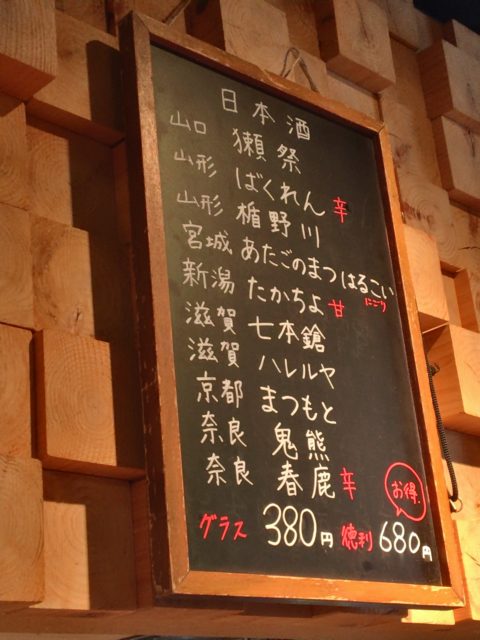 日本酒
山口 獺祭
山形 ばくれん 辛
山形 楯野川
宮城 あたごのまつ はるこい
新潟 たかちよ 甘 にごり
滋賀 七本鎗
滋賀 ハレルヤ
京都 まつもと
奈良 鬼熊
奈良 春鹿 辛
お得。
グラス 380円 徳利 680円